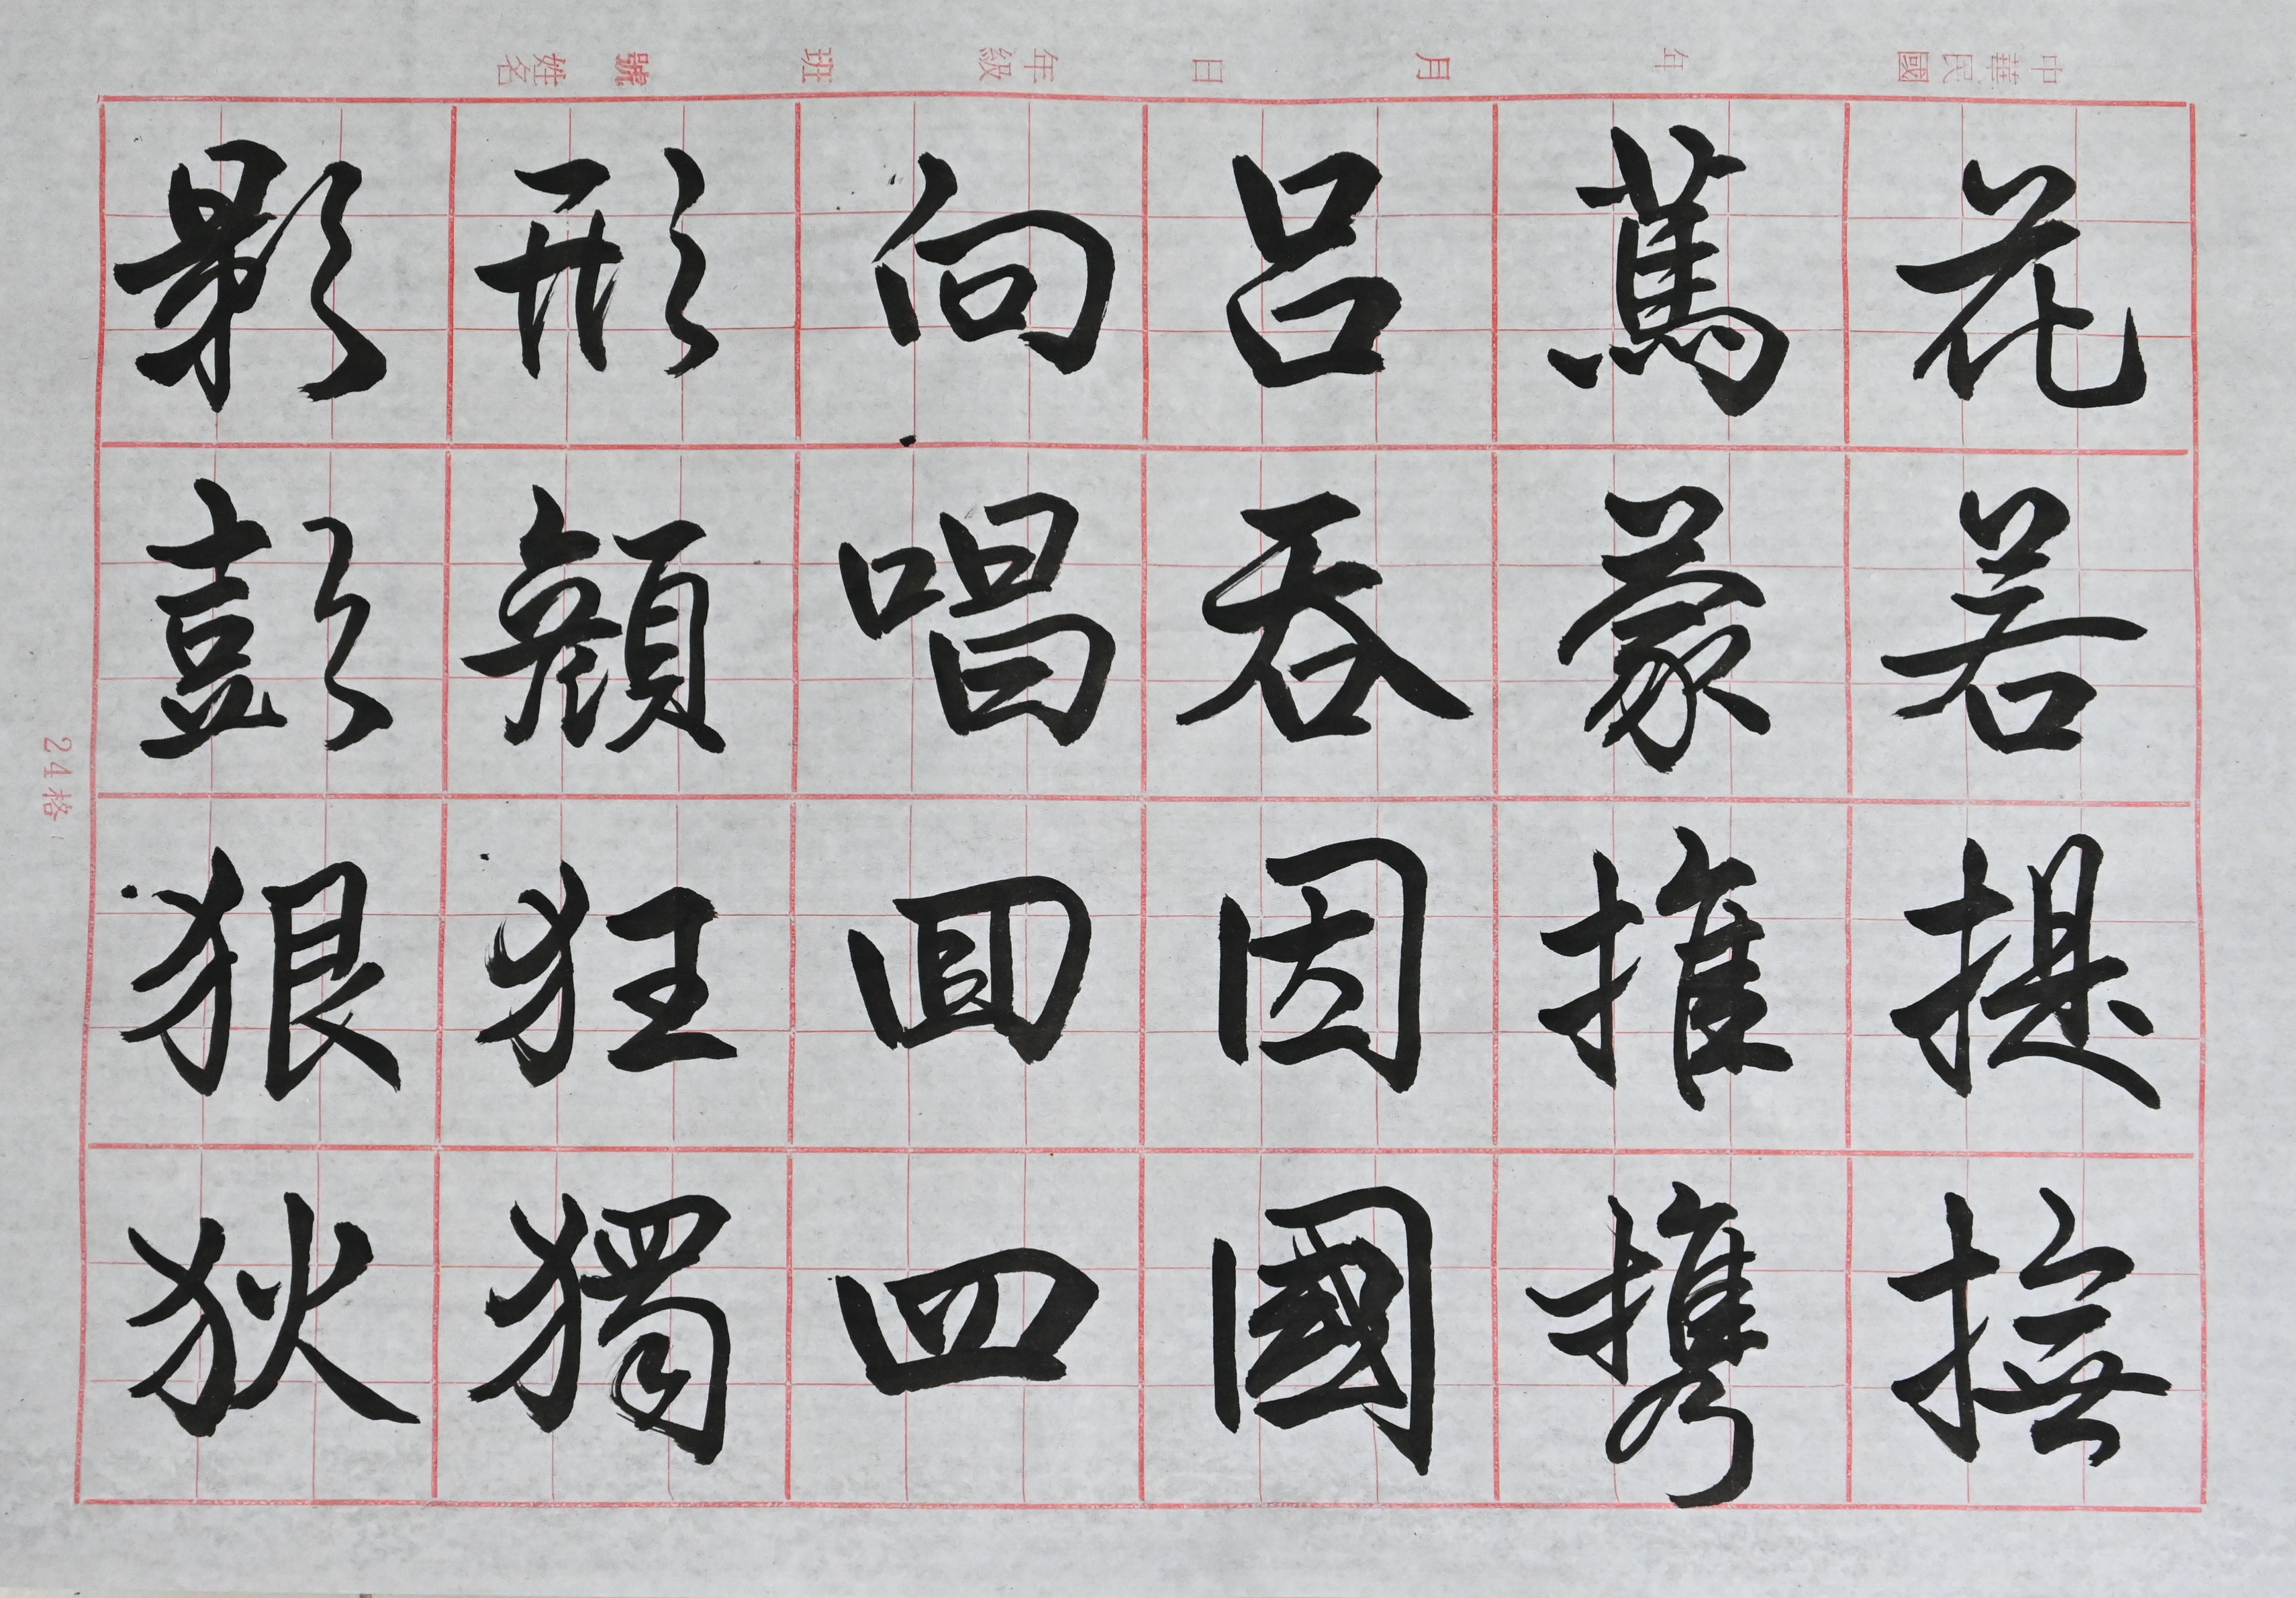 中華民國　年　月　日　年級　班　號　姓名
花若提撫
蔦蒙推携
呂吞因國
向唱回四
形顏狂獨
影彭狠狄
24格